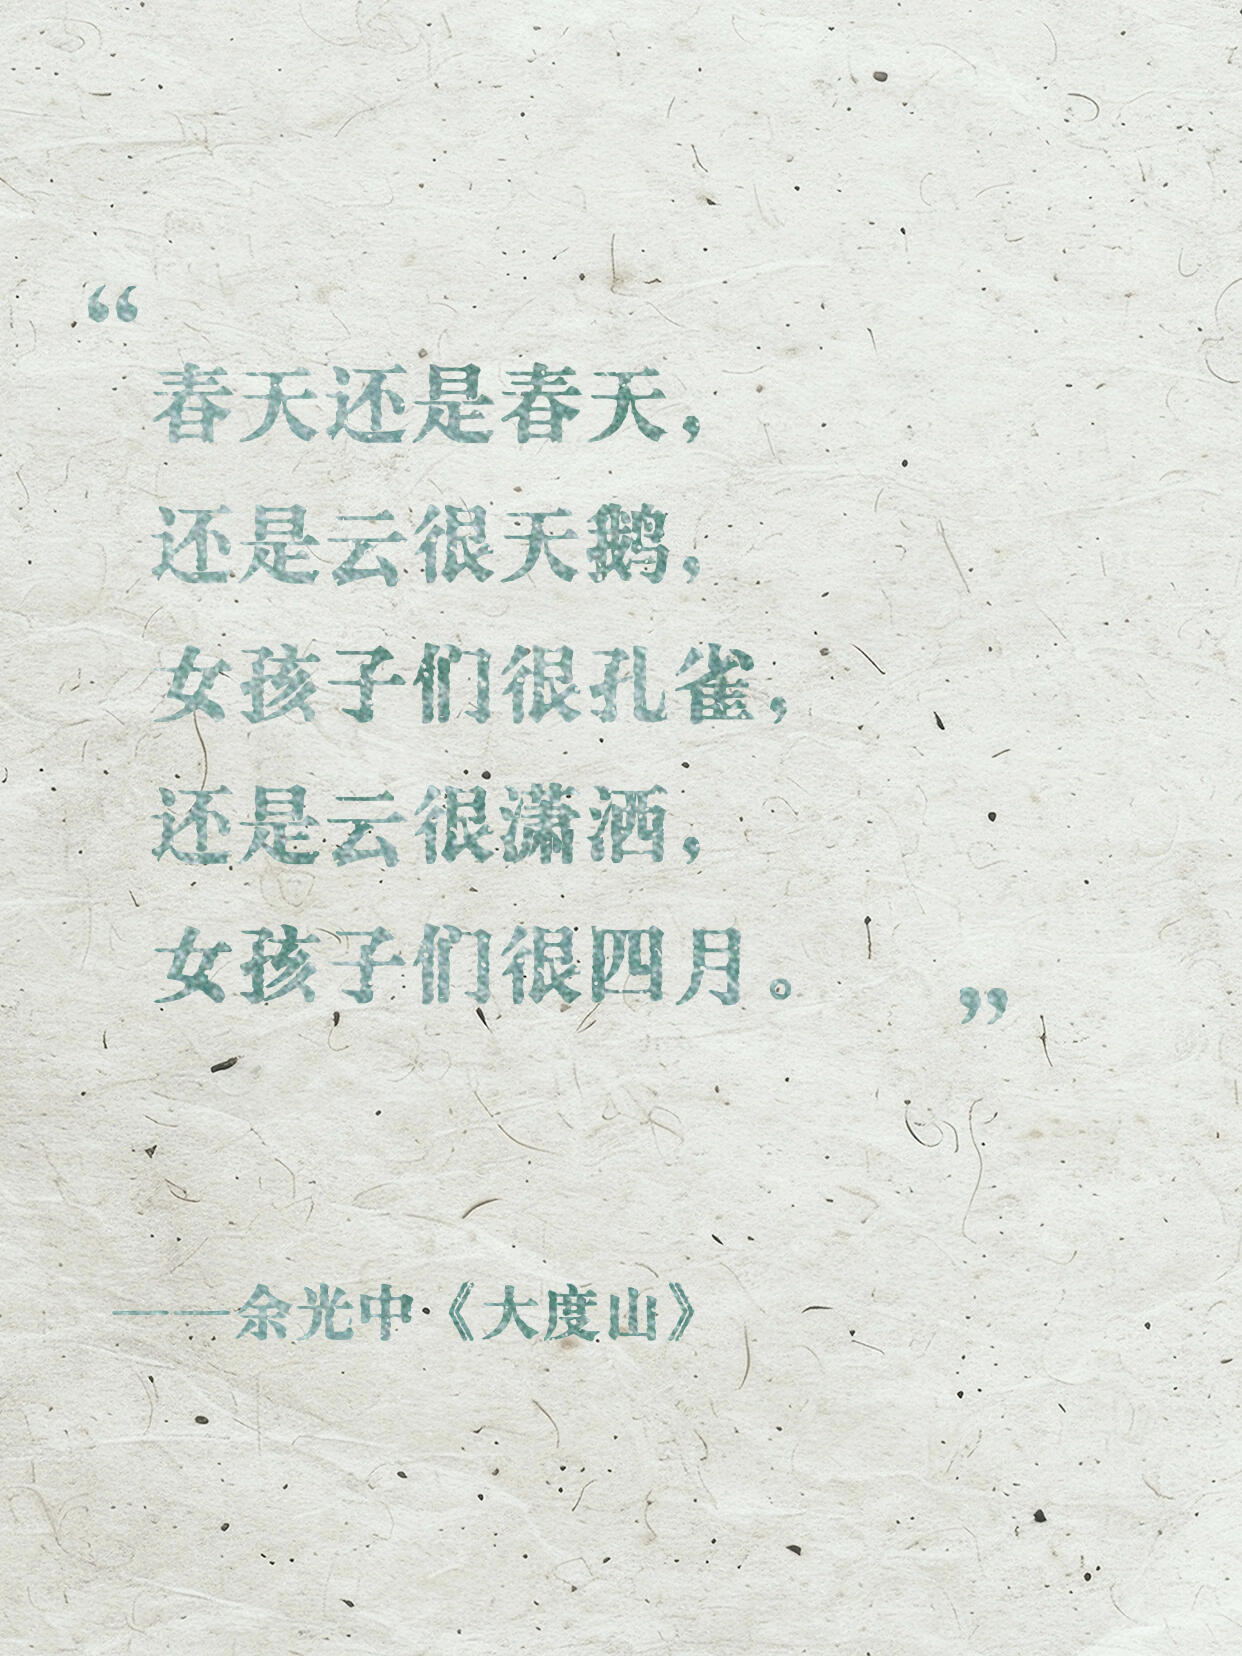 “
春天还是春天，
还是云很天鹅，
女孩子们很孔雀，
还是云很潇洒，
女孩子们很四月。
”
——余光中《大度山》